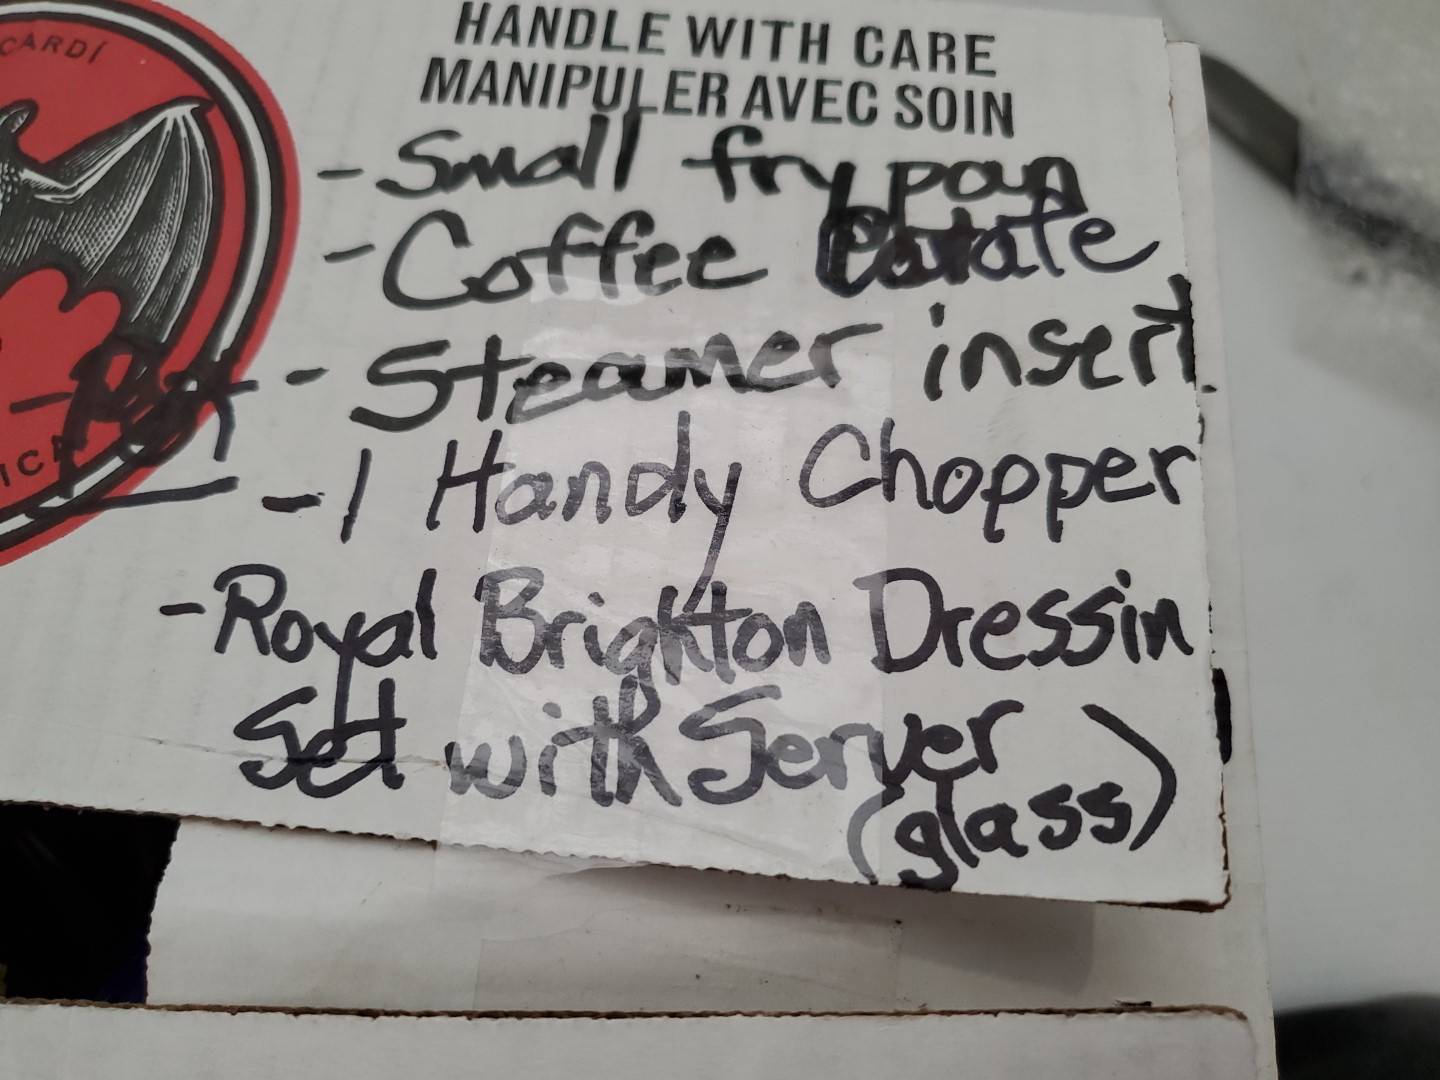 CARDÍ
HANDLE WITH CARE
MANIPULER AVEC SOIN
- Small fry pan
- Coffee
- Steamer insert
- Pot
ICA
- 1 Handy Chopper
- Royal Brighton Dressin
Set with Server
(glass)